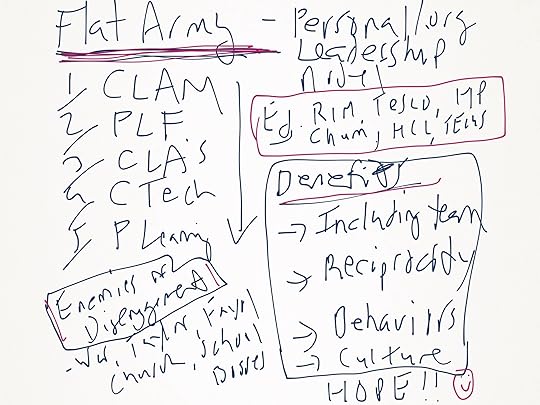 Flat Army - Personal/org
Leadership
Model
1/ CLAM
2/ PLF
3/ CLA's
4/ CTech
5/ P Learning
Eg. RIM, TESCO, MP
Chum, HCL, TELUS
Benefits
→ Including team
→ Reciprocity
→ Behaviors
→ Culture
HOPE!!
Enemies of
Disengagement
- War, Taylor, Fayol
Church, School
Bosses